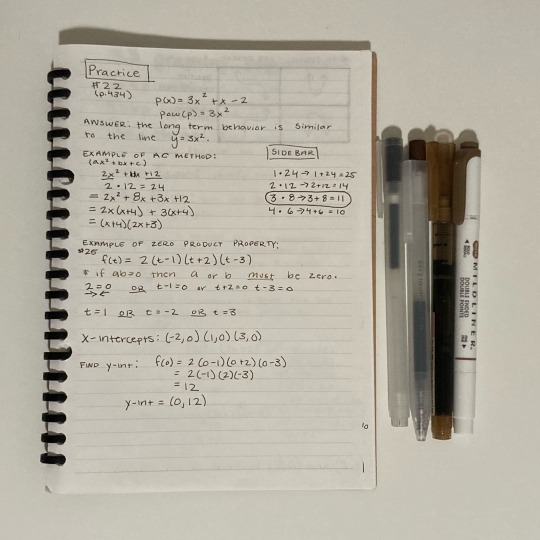 Practice
#22
(p.434)
p(x) = 3x² + x - 2
pow(p) = 3x²
ANSWER: the long term behavior is similar
to the line y = 3x².
EXAMPLE OF AC METHOD:
(ax² + bx + c)
2x² + 11x + 12
2 · 12 = 24
= 2x² + 8x + 3x + 12
= 2x(x+4) + 3(x+4)
= (x+4)(2x+3)
SIDEBAR
1 · 24 → 1 + 24 = 25
2 · 12 → 2 + 12 = 14
3 · 8 → 3 + 8 = 11
4 · 6 → 4 + 6 = 10
EXAMPLE OF ZERO PRODUCT PROPERTY:
#25
f(t) = 2(t-1)(t+2)(t-3)
* if ab=0 then a or b must be zero.
2=0 OR t-1=0 or t+2=0 t-3=0
t=1 OR t=-2 OR t=3
X-intercepts: (-2,0) (1,0) (3,0)
FIND y-int: f(0) = 2(0-1)(0+2)(0-3)
= 2(-1)(2)(-3)
= 12
y-int = (0,12)
10
MILDLINER
DOUBLE ENDED
DOUBLE POINTE